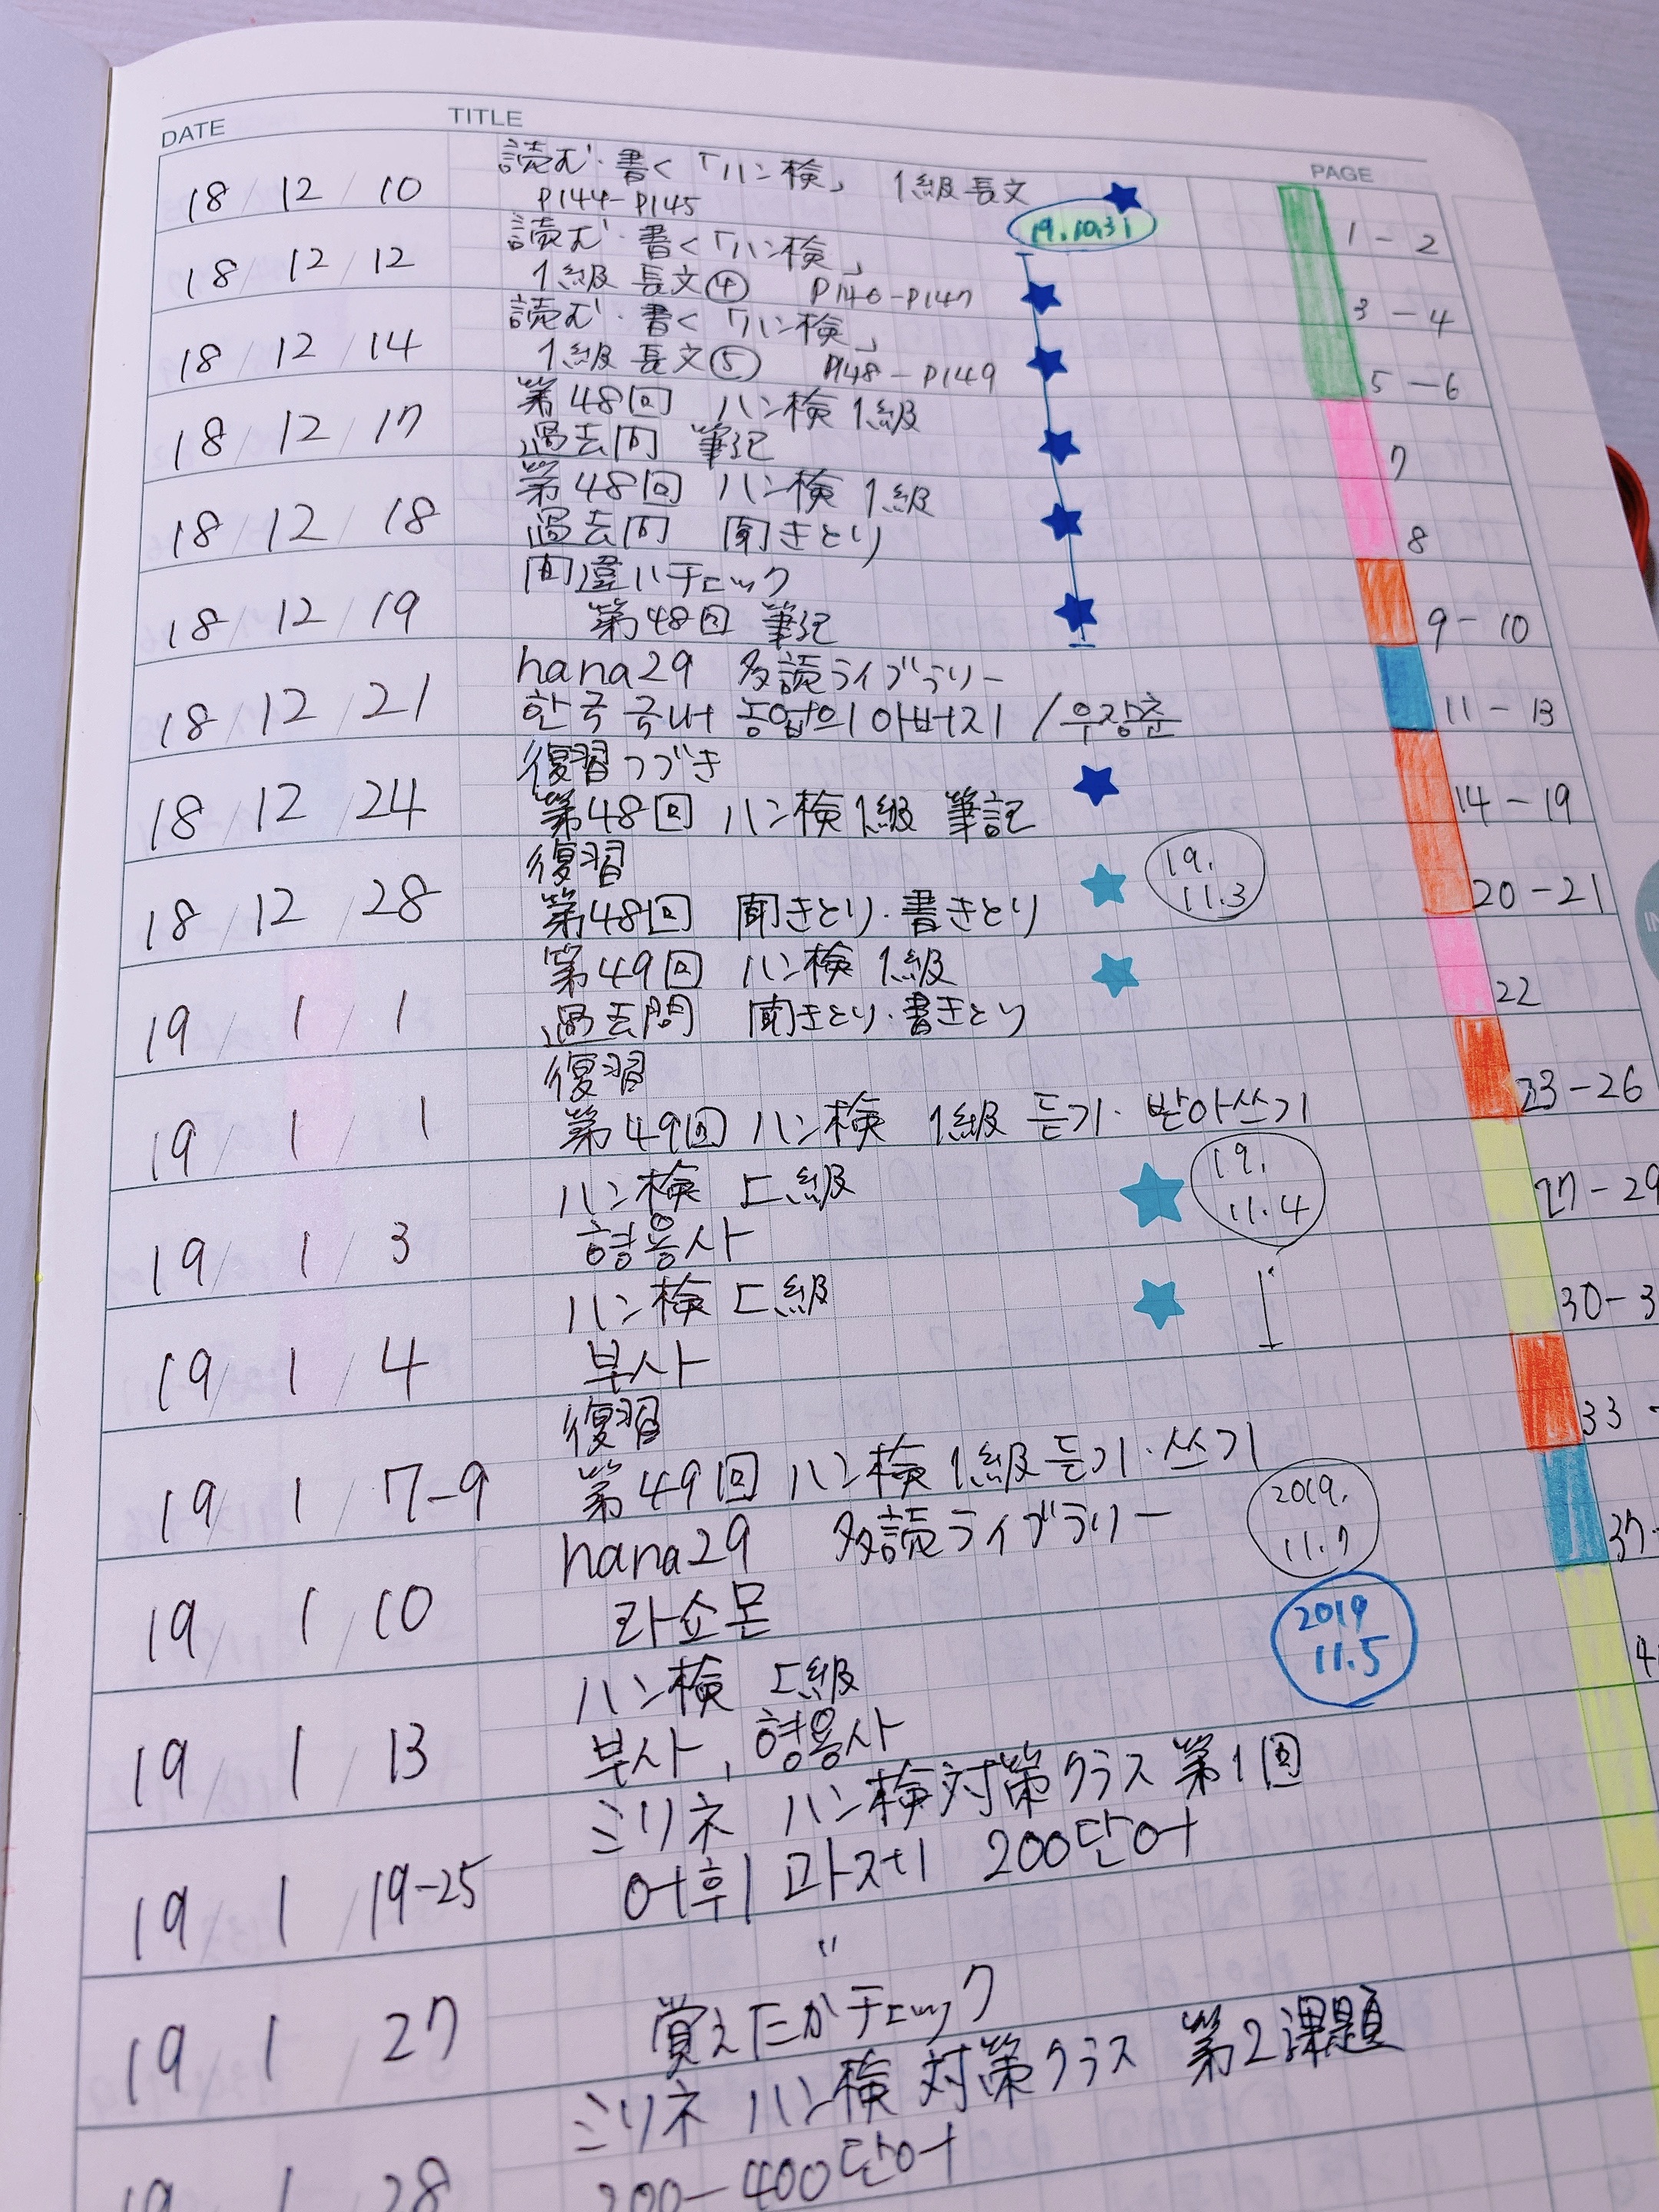 DATE TITLE PAGE
18/12/10 読む・書く「ハン検」 1級長文
P144-P145 1-2
19.10.31
18/12/12 読む・書く「ハン検」
1級長文④ P146-P147 3-4
18/12/14 読む・書く「ハン検」
1級長文⑤ P148-P149 5-6
18/12/17 第48回 ハン検1級
過去問 筆記 7
18/12/18 第48回 ハン検 1級
過去問 聞きとり 8
18/12/19 間違いチェック
第48回 筆記 9-10
18/12/21 hana29 多読ライブラリー
한국 국내 농업의 아버지 / 우장춘 11-13
18/12/24 復習つづき
第48回 ハン検1級 筆記 14-19
18/12/28 復習
第48回 聞きとり・書きとり 20-21
19.
11.3
19/1/1 第49回 ハン検 1級
過去問 聞きとり・書きとり 22
19/1/1 復習
第49回 ハン検 1級 듣기・받아쓰기 23-26
19/1/3 ハン検 上級
형용사 27-29
19.
11.4
19/1/4 ハン検 上級
부사 30-3
19/1/7-9 復習
第49回 ハン検 1級 듣기・쓰기 33-
19/1/10 hana29 多読ライブラリー
라쇼몬 37-
2019.
11.7
19/1/13 ハン検 上級
부사, 형용사 4
2019
11.5
19/1/19-25 ミリネ ハン検対策クラス 第1回
어휘 과제 200단어
19/1/27 〃
覚えたかチェック
19/1/28 ミリネ ハン検 対策クラス 第2課題
200-400단어